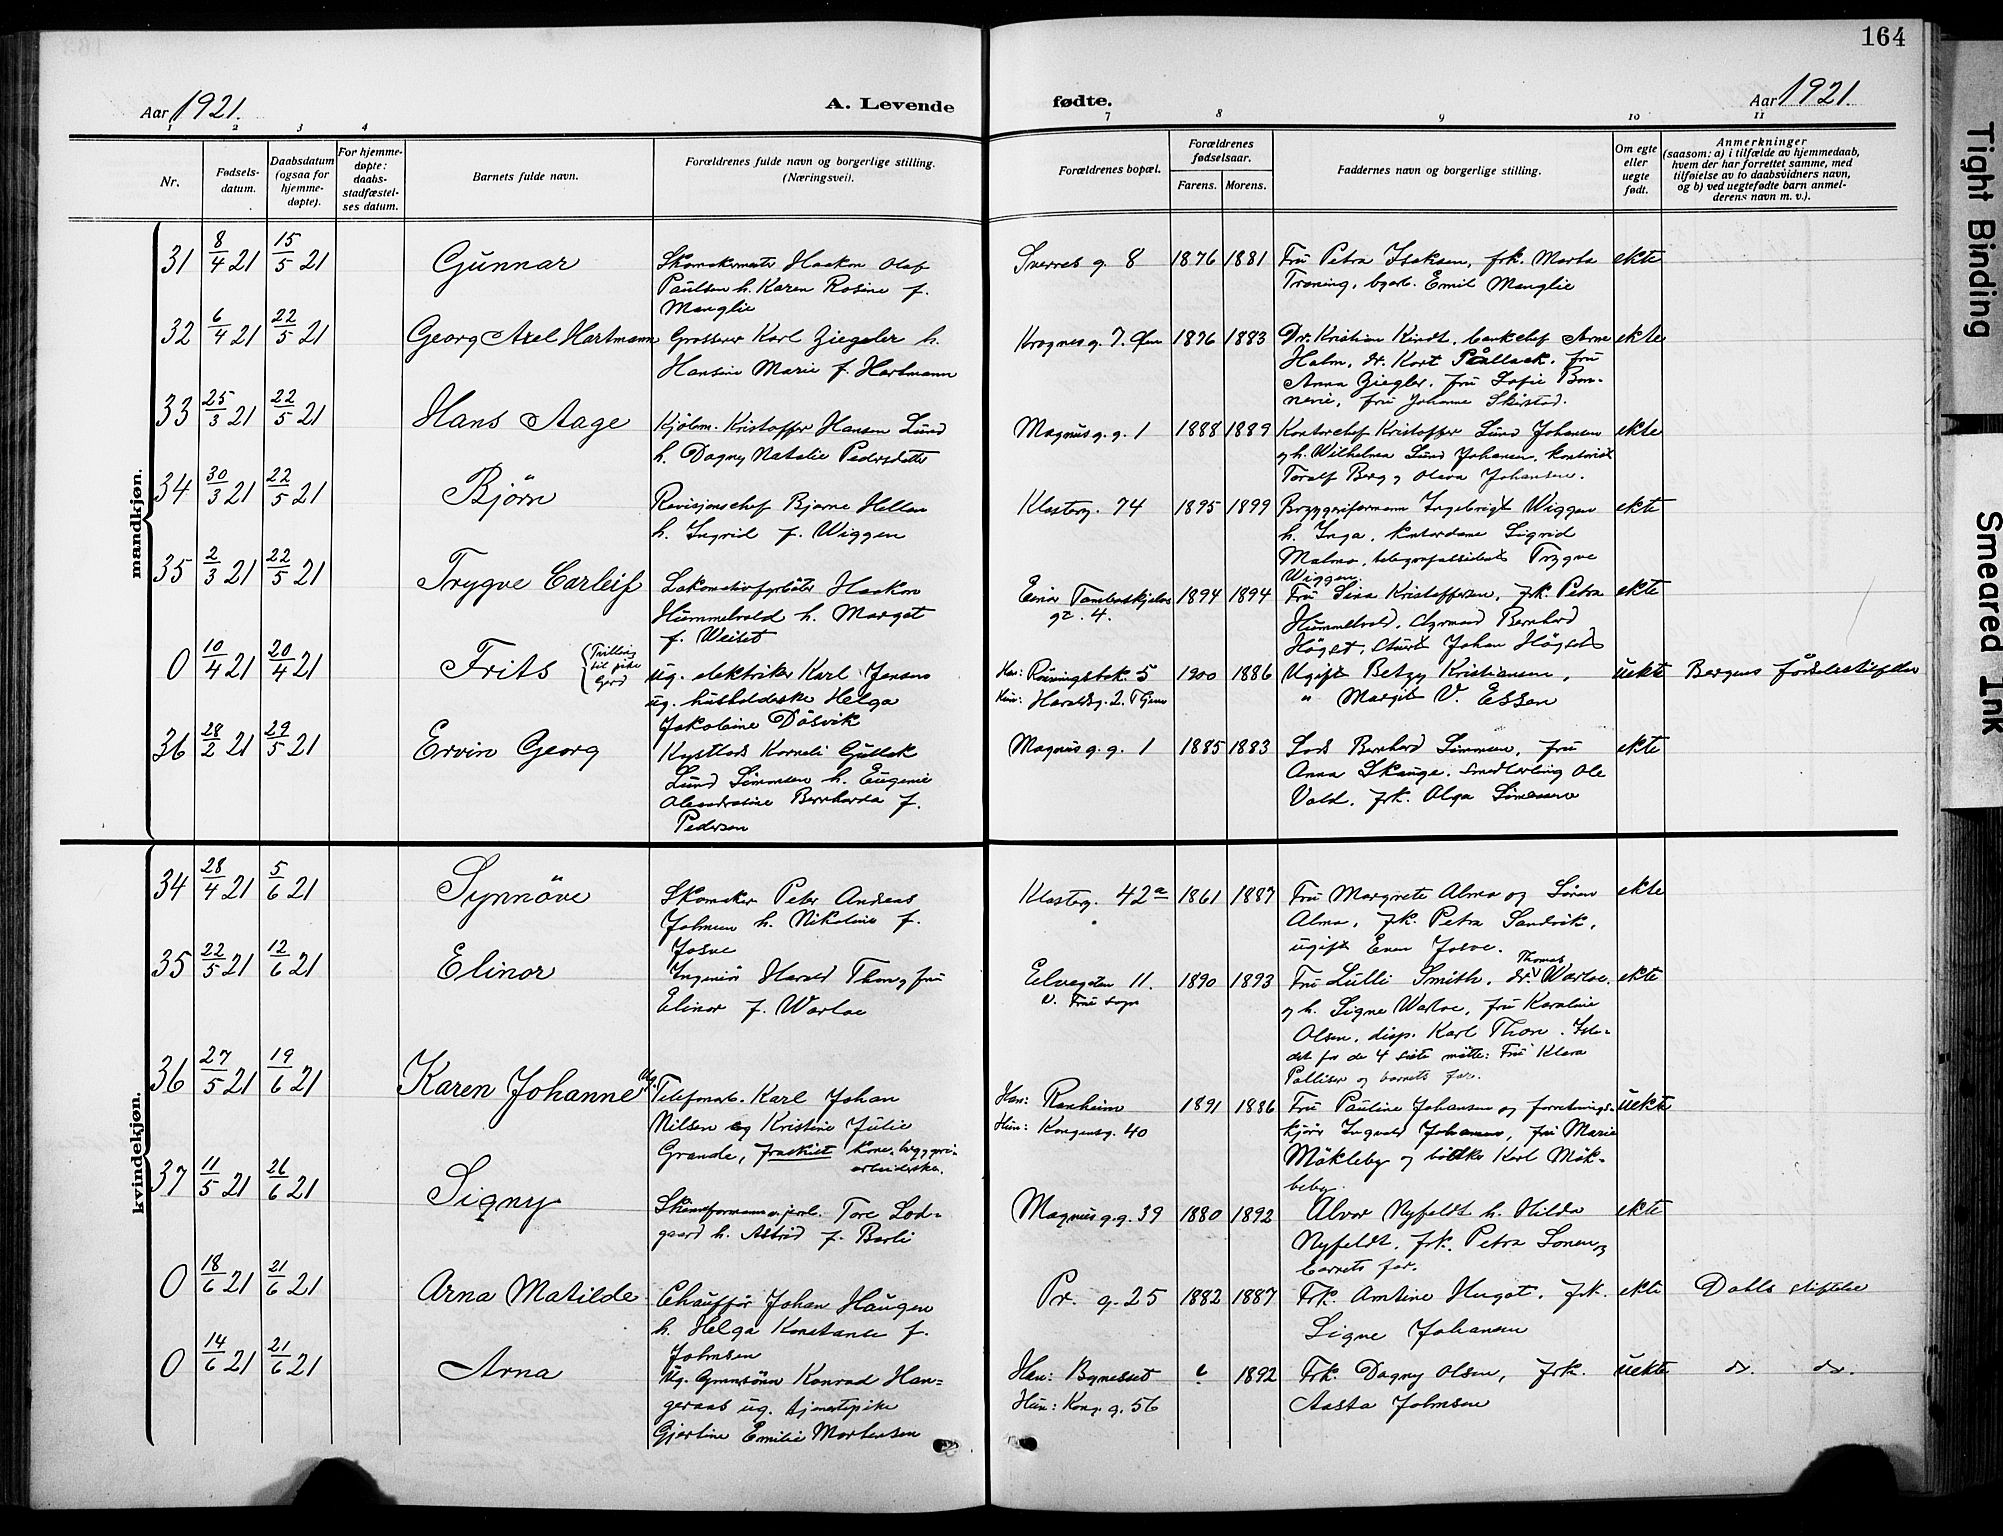 164
Aar 1921.
A. Levende
fødte.
Aar 1921.
1 2 3 4
7 8 9 10 11
Nr.
Fødsels-
datum.
Daabsdatum
(ogsaa for
hjemme-
døpte).
For hjemme-
døpte:
daabs-
stadfæstel-
ses datum.
Barnets fulde navn.
Forældrenes fulde navn og borgerlige stilling.
(Næringsvei).
Forældrenes bopæl.
Forældrenes
fødselsaar.
Farens. Morens.
Faddernes navn og borgerlige stilling.
Om egte
eller
uegte
født.
Anmerkninger
(saasom: a) i tilfælde av hjemmedaab,
hvem der har forrettet samme, med
tilføielse av to daabsvidners navn,
og b) ved uegtefødte barn anmel-
derens navn m. v.).
mandkjøn.
31 8/4 21 15/5 21 Gunnar
Haakon Olaf
Paulsen h. Karen Rosine f.
Manglie
Sverres g. 8 1876 1881
Fru Petra Isaksen, frk. Marta
Træning, Emil Manglie
ekte
32 6/4 21 22/5 21 Georg Axel Hartmann
Grosserer Karl Ziegeler h.
Hansine Marie f. Hartmann
1876 1883
Dr. Kristian Kindt, bankchef Arne
Halm, dr. Kort Pållack, fru
Anna Ziegler, fru Sofie Bon-
nevie, fru Johanne Skirstad.
ekte
33 25/3 21 22/5 21 Hans Aage
Kristoffer Hansen Lund
h. Dagny Natalie Pedersdatter
Magnus g. g. 1 1888 1889
Kontorchef Kristoffer Lund Johansen
og h. Wilhelmea Lund Johansen, kontorist
Toralf Berg og Olava Johansen.
ekte
34 30/3 21 22/5 21 Bjørn
Revisjonschef Bjarne Hellan
h. Ingrid f. Wiggen
Klosterg. 74 1895 1899
Bryggeriformann Ingebrigt Wiggen
h. Inga, kontordame Sigrid
Malmo, Trygve
Wiggen
ekte
35 2/3 21 22/5 21 Trygve Carleif
Lokomotivfyrbøter Haakon
Hummelvold h. Margot
f. Weiset
Einar Tambaskjelves
gt. 4. 1894 1894
Fru Sina Kristoffersen, frk. Petra
Hummelvold, Bernhard
Høgset, Johan Høgset
ekte
0 10/4 21 20/4 21 Frits
(Tvilling
til pike
Gerd
ug. elektriker Karl Jensen
ug. husholderske Helga
Jakobine Dåsvik
Han: 5
Hun: Haraldsg. 2. 1900 1886
Ugift Betzy Kristiansen,
" Margit V. Essen
uekte
Bergens fødselsstiftelse
36 28/2 21 29/5 21 Ervin Georg
Kystlods Korneli Gullak
Lund Simonsen h. Eugenie
Bernharda f.
Pedersen
Magnus g. g. 1 1885 1883
Lods Bernhard Simonsen, fru
Anna Skauge, smedlærling Ole
Vold, frk. Olga Simonsen
ekte
kvindekjøn.
34 28/4 21 5/6 21 Synnöve
Skomaker Peter Andreas
Johnsen h. Nikoline f.
Josve
Klosterg. 42 a 1861 1887
Fru Margrete Alma og Sören
Alma, frk. Petra Sandvik,
ugift Even Josve.
ekte
35 22/5 21 12/6 21 Elinor
Ingeniör Harald Thon og fru
Elinor f. Warloe
Elvegaten 11.
V. Frue sogn 1890 1893
Thomas
Fru Lulli Smith, dr. Warloe,
og h. Signe Warloe, fru Karoline
Olsen, disp. Karl Thon. Iste-
det for de 4 siste mötte: Fru Klara
Palliser og barnets far.
ekte
36 27/5 21 19/6 21 Karen Johanne
Telefonarb. Karl Johan
Nilsen og Kristine Julie
Grande, fraskilt kone, bryggeri-
arbeiderske.
Han: Ranheim
Hun: Kongensg. 40 1891 1886
Fru Pauline Johansen og forretnings-
kjörer Ingvald Johansen, fru Marie
Mökleby og bödker Karl Mök-
leby.
uekte
37 11/5 21 26/6 21 Signy
Tore Lod-
gaard h. Astrid f. Berli
Magnus g. g. 39 1880 1892
Alvor Nyfeldt h. Hilda
Nyfeldt, frk. Petra Sonen og
barnets far.
ekte
0 18/6 21 21/6 21 Arna Matilde
Chauffør Johan Haugen
h. Helga Konstanse f.
Johnsen
Pr. g. 25 1882 1887
Frk. Antine Hugot, frk.
Signe Johansen
ekte
Dahls stiftelse
0 14/6 21 21/6 21 Arna
Ug. Konrad Han-
geraas ug. tjenestepike
Gjertine Emilie Mortensen
Han: Bynesset
Hun: Kong. g. 56 1892
Frk. Dagny Olsen, frk.
Aasta Johnsen
uekte
do. do.
Tight Binding
Smeared Ink